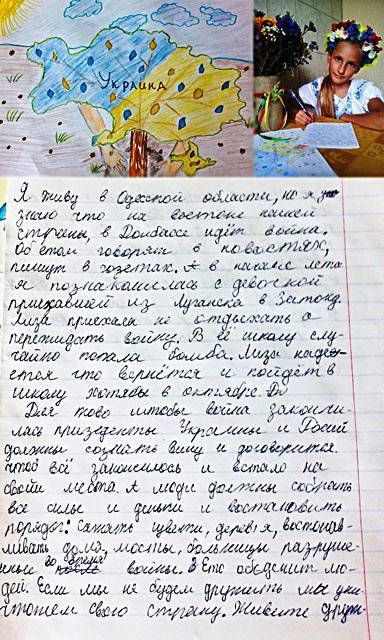 Украина
Я живу в Одесской области, но я
знаю что на востоке нашей
страны, в Донбасе идёт война.
Об етом говорят в новостях,
пишут в газетах. А в начале лета
я познакомилась с девочкой
приехавшей из Луганска в Затоку.
Лиза приехала не отдыхать а
переждать войну. В её школу слу-
чайно попала бомба. Лиза надее-
ется что вернётся и пойдёт в
школу хотябы в октябре.
Для тово штобы война закончи-
лась призеденты Украины и Росий
должны сознать вину и договорится.
Чтоб всё закончилось и встало на
свойи места. А люди должны собрать
все силы и деньги и востановить
порядок: сажать цветы, деревья, востонав-
ливать дома, мосты, больницы разруше-
нные во время войны. Ето обеденит лю-
дей. Если мы не будем дружить мы уни-
чтожем свою страну. Живите друж-